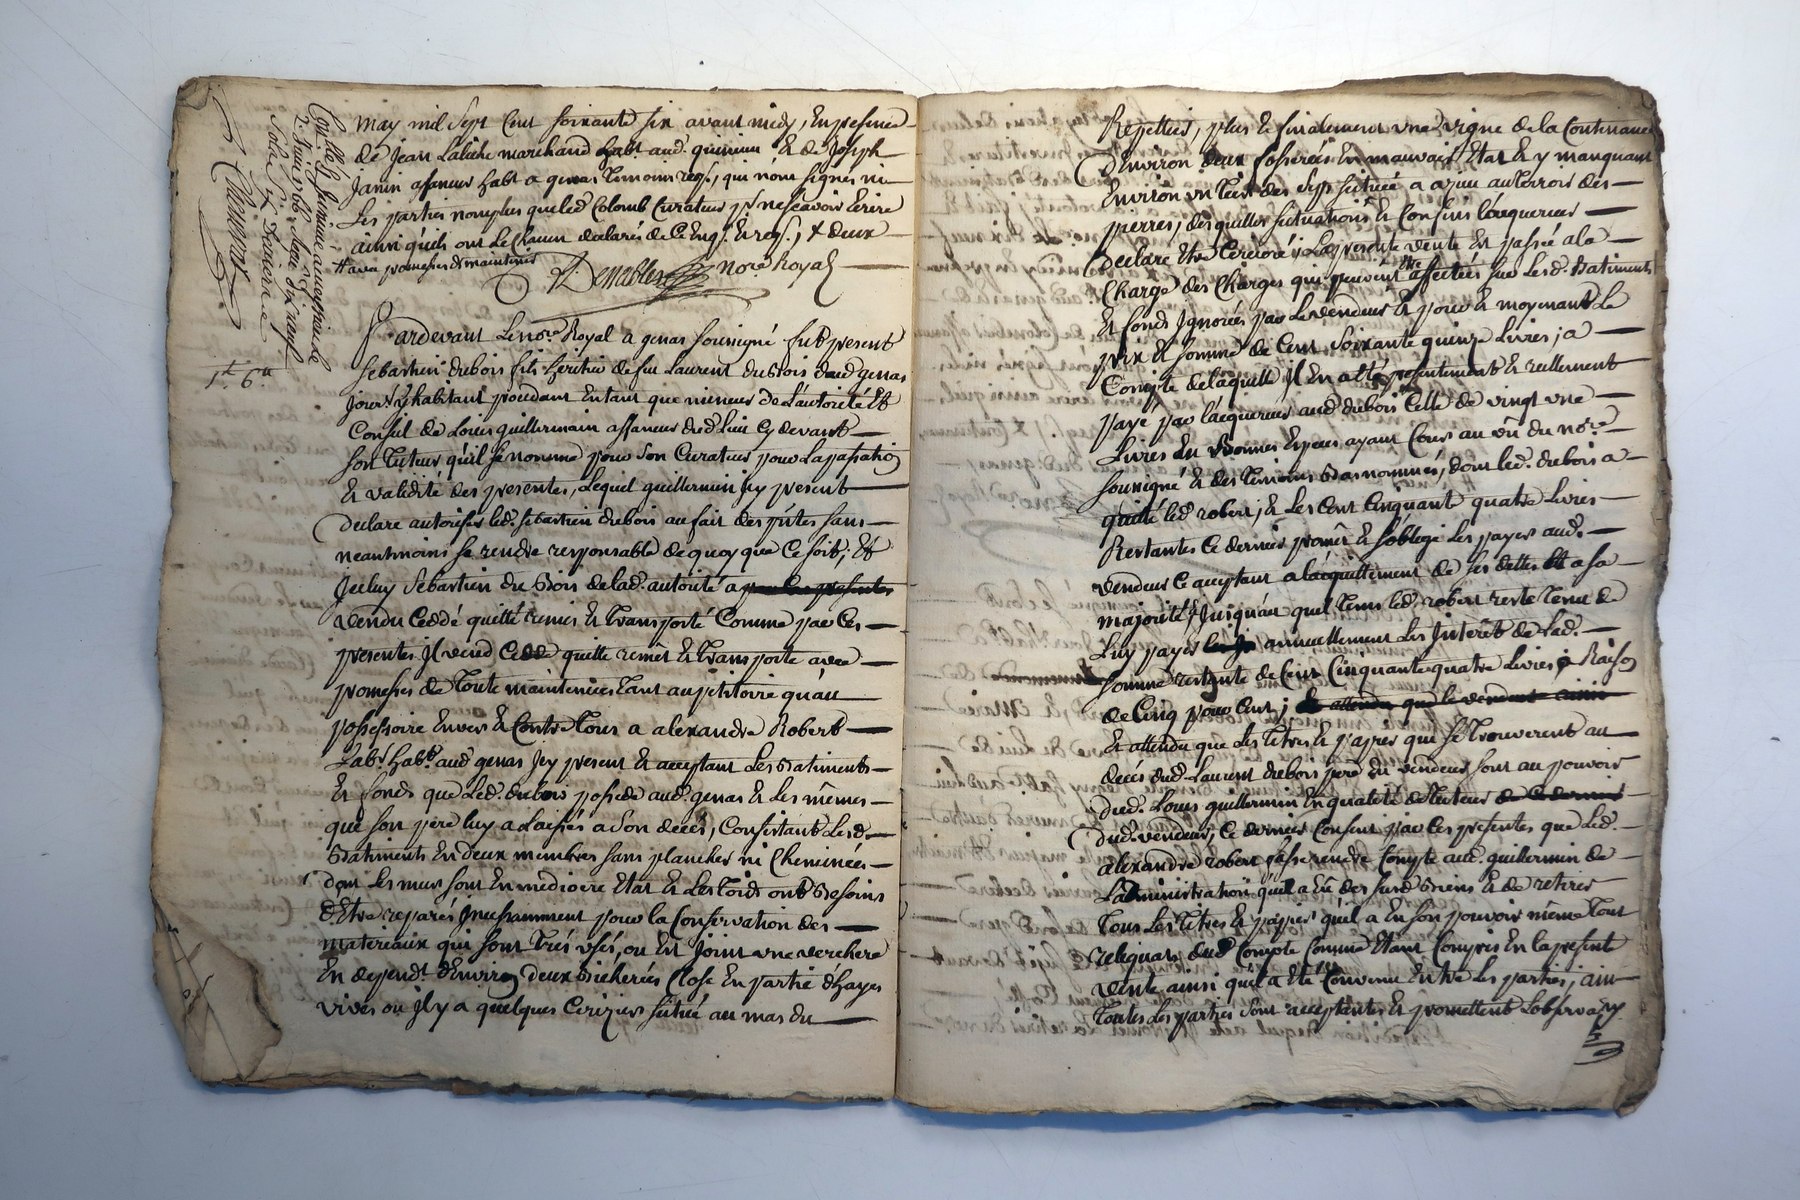 may mil Sept Cent soixante six avant midy, En presence
de Jean Labiche marchand hab.t aud. & de Joseph
Janin affaneur hab.t a genas Temoins req.s, qui n'ont signés ni
Les parties non plus que led. Colomb Curateur p.r ne scavoir Ecrire
ainsi qu'ils ont Le Chacun declarés de Ce Enq.s & req.s, &
avec promesses de maintenir
Demables nore Royal
Pardevant Le no.re Royal a genas soussigné fut present
Sebastien dubois fils heritier de feu Laurent dubois dud. genas
Jour.r y habitant procedant En tant que mineur de L'autorité Et
Conseil de Louis guillermain affaneur dud. Lieu Cy devant
son Tuteur qu'il se nomme pour Son Curateur pour La passation
& validité des presentes, Lequel guillermin Jcy present
declare autoriser led. Sebastien dubois au fait des p.ntes sans
neantmoins se rendre responsable de quoy que Ce soit; Et
Jceluy Sebastien du Bois de lad. autorité a par les presentes
vendu Ceddé quitté remis & Transporté Comme par Ces
presentes Jl vend Cedde quitte remet & transporte avec
promesses de Toute maintenüe Tant au petitoire qu'au
possessoire Envers & Contre Tous a alexandre Robert
Lab.r hab.t aud. genas Jcy present & acceptant Les Batiments
& fonds que Led. dubois possede aud. genas & Les mêmes
que son pere luy a Laissés a Son decès, Consistant Lesd.
Batiments En deux membres sans plancher ni Cheminées
dont Les murs sont En mediocre Etat & Les Toids ont Besoins
d'Etre reparés Jncessamment pour la Conservation des
materiaux qui sont Très usés, ou Est Joint une verchere
En depend.t d'Environ deux Bicherées Close En partie d'hayes
vives ou Jl y a quelques Ceriziers située au mas du
Repellier, plus & finalement une vigne de la Contenance
d'Environ deux fosserées En mauvais Etat & y manquant
Environ un Tiers des Seps située a azieu au Terroir des
pierres, desquelles Situations & Confins l'acquereur
declare Etre Cercioré; La presente vente Est passée a la
Charge des Charges qui peuvent Etre affectées sur Lesd. Batiments
& fonds Jgnorées par Le vendeur & pour & moyenant Le
prix & somme de Cent soixante quinze Livres, a
Compte de laquelle Jl En a Eté presentement & reellement
payé par l'acquereur aud. dubois Celle de vingt une
Livres En Bonnes Especes ayant Cours au vû du no.re
soussigné & des Temoins Bas nommés, dont led. dubois a
quitté led. robert, & Les Cent Cinquant quatre Livres
Restantes Ce dernier promet & s'oblige Les payer aud.
vendeur Ce acceptant a l'acquittement de ses dettes a sa
majorité, Jusqu'au quel Tems led. robert reste Tenu de
Luy payer annuellement Les Jnterêt de Lad.
somme restante de Cent Cinquante quatre Livres a Raison
de Cinq pour Cent; & attendu que le vendeur
& attendu que Les Titres & papiers qui se Trouverent au
decès dud. Laurent dubois pere du vendeur sont au pouvoir
dud. Louis guillermin En qualité de Tuteur de Ce dernier
dud. vendeur, Ce dernier Consent par Ces presentes que Led.
alexandre robert fasse rendre Compte aud. guillermin de
L'administration qu'il a Eü des susd. Biens & de retirer
Tous Les Titres & papiers qu'il a En son pouvoir même Tout
reliquat dud. Compte Comme Etant Compris En la presente
vente ainsi qu'il a Eté Convenu Entre Les parties, ain-
Toutes Les parties sont acceptantes & promettent L'observer